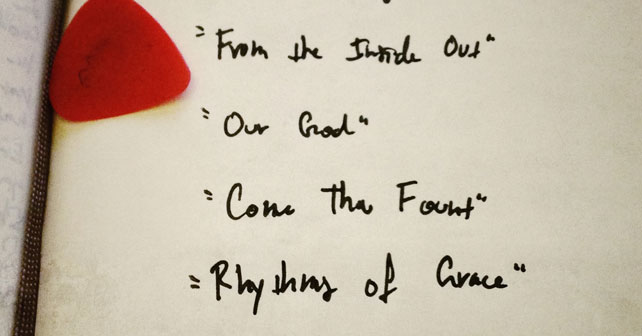 "From the Inside Out"
"Our God"
"Come Thou Fount"
"Rhythms of Grace"